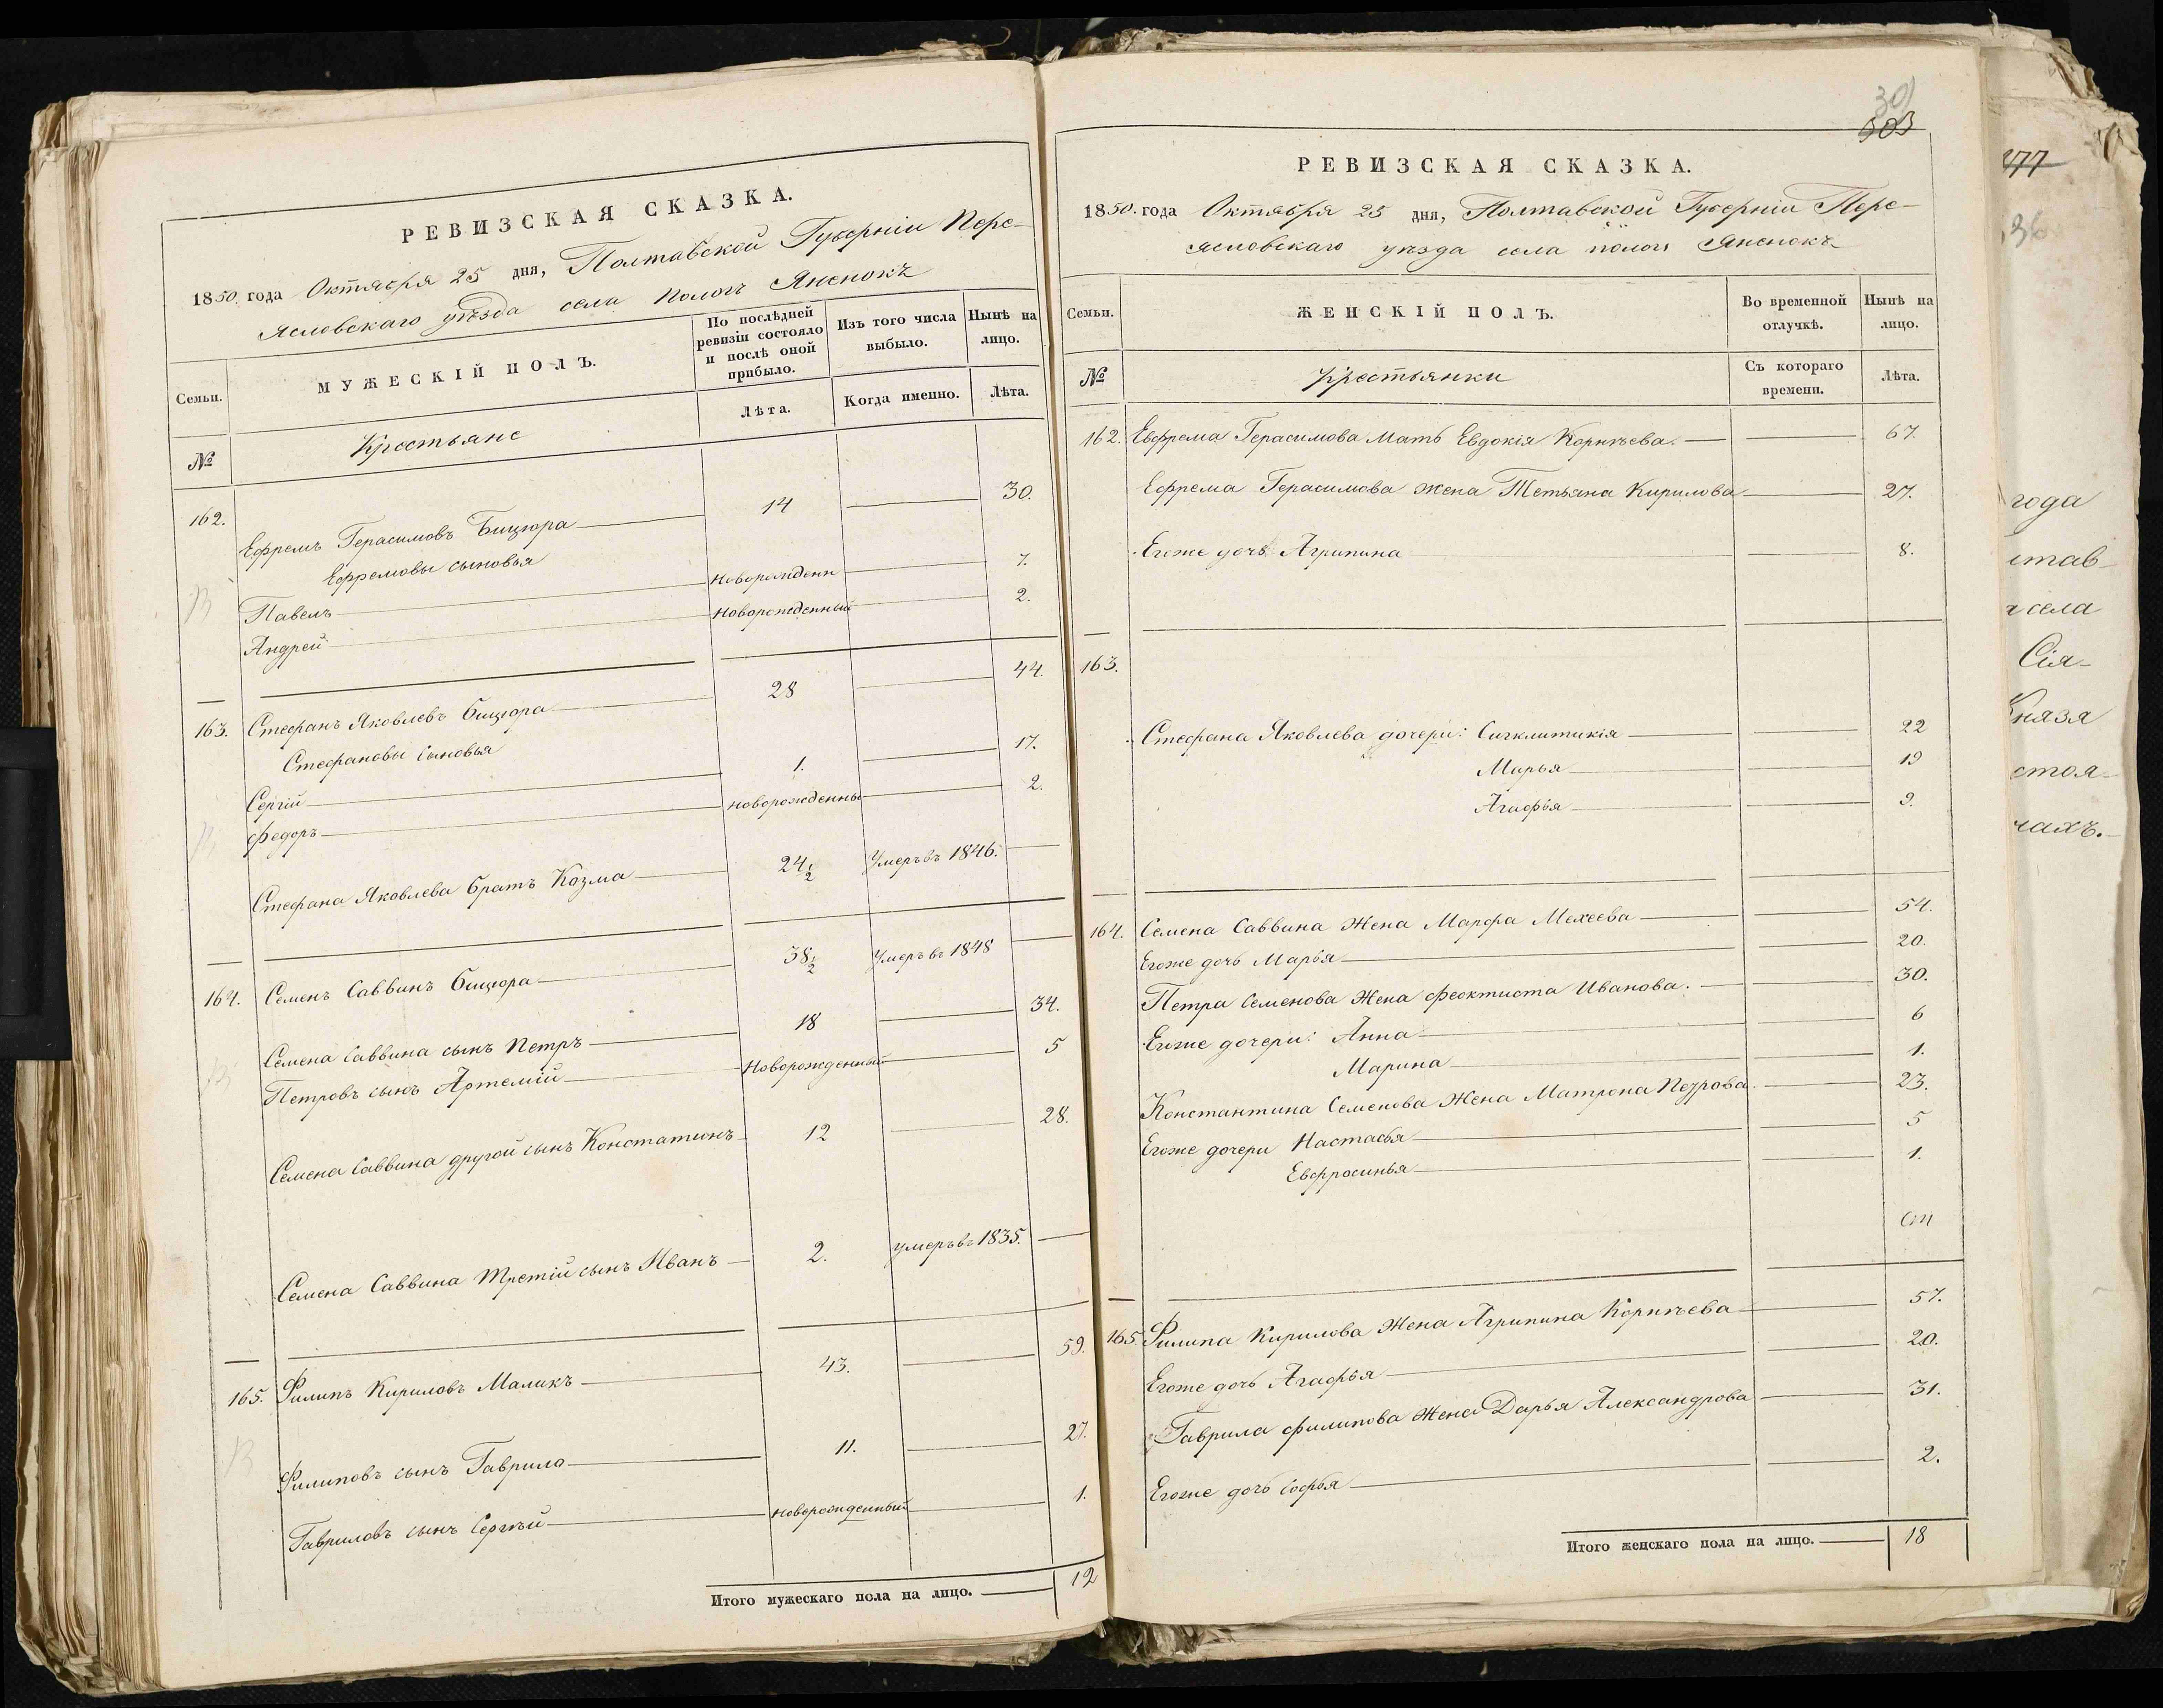 РЕВИЗСКАЯ СКАЗКА.
1850. года Октября 25 дня, Полтавской Губерніи Пере-
яславскаго уѣзда села Пологъ Яненокъ
Семьи.
МУЖЕСКІЙ ПОЛЪ.
По послѣдней ревизіи состояло и послѣ оной прибыло.
Изъ того числа выбыло.
Нынѣ на лицо.
№
Крестьяне
Лѣта.
Когда именно.
Лѣта.
162. Ефремъ Герасимовъ Бицюра — 14 — 30.
Ефремовы сыновья
Павелъ — новорожденн — 7.
Андрей — новорожденный — 2.
163. Стефанъ Яковлевъ Бицюра — 28 — 44.
Стефановы сыновья
Сергій — 1. — 17.
Федоръ — новорожденны — 2.
Стефана Яковлева братъ Козма — 24½ Умеръ въ 1846. —
164. Семенъ Саввинъ Бицюра — 38½ Умеръ въ 1848 —
Семена Саввина сынъ Петръ — 18 — 34.
Петровъ сынъ Артемій — Новорожденный — 5
Семена Саввина другой сынъ Констатинъ — 12 — 28.
Семена Саввина третій сынъ Иванъ — 2. умеръ въ 1835. —
165. Филипъ Кириловъ Маликъ — 43. — 59.
Филиповъ сынъ Гаврило — 11. — 27.
Гавриловъ сынъ Сергѣй — новорожденный — 1.
Итого мужескаго пола на лицо. — 12
301
303
РЕВИЗСКАЯ СКАЗКА.
1850. года Октября 25 дня, Полтавской Губерніи Пере-
яславскаго уѣзда села Пологъ Яненокъ
Семьи.
ЖЕНСКІЙ ПОЛЪ.
Во временной отлучкѣ.
Нынѣ на лицо.
№
Крестьянки
Съ котораго времени.
Лѣта.
162. Ефрема Герасимова Мать Евдокія Корнѣева. — 67.
Ефрема Герасимова жена Тетьяна Кирилова — 27.
Егоже дочь Агрипина — 8.
163.
Стефана Яковлева дочери: Сигклитикія — 22
Марья — 19
Агафья — 9.
164. Семена Саввина Жена Марфа Мехеева — 54.
Егоже дочь Марья — 20.
Петра Семенова Жена Феоктиста Иванова. — 30.
Егоже дочери: Анна — 6
Марина — 1.
Константина Семенова Жена Матрона Петрова. — 23.
Егоже дочери Настасья — 5
Евфросинья — 1.
165. Филипа Кирилова Жена Агрипина Корнѣева — 57.
Егоже дочь Агафья — 20.
Гаврила Филипова Жена Дарья Александрова — 31.
Егоже дочь Софья — 2.
Итого женскаго пола на лицо. — 18
277
года
став-
села
Сія-
Князя
стоя-
чахъ.-